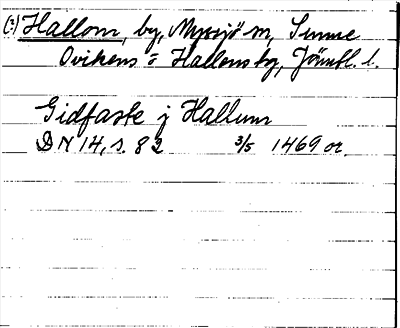 (?) Hallom, by, Myssjö sn, Sunne
Ovikens o Hallens tg, Jämtl. l.
Gidfaste j Hallum
DN 14, s. 82 3/5 1469 or.